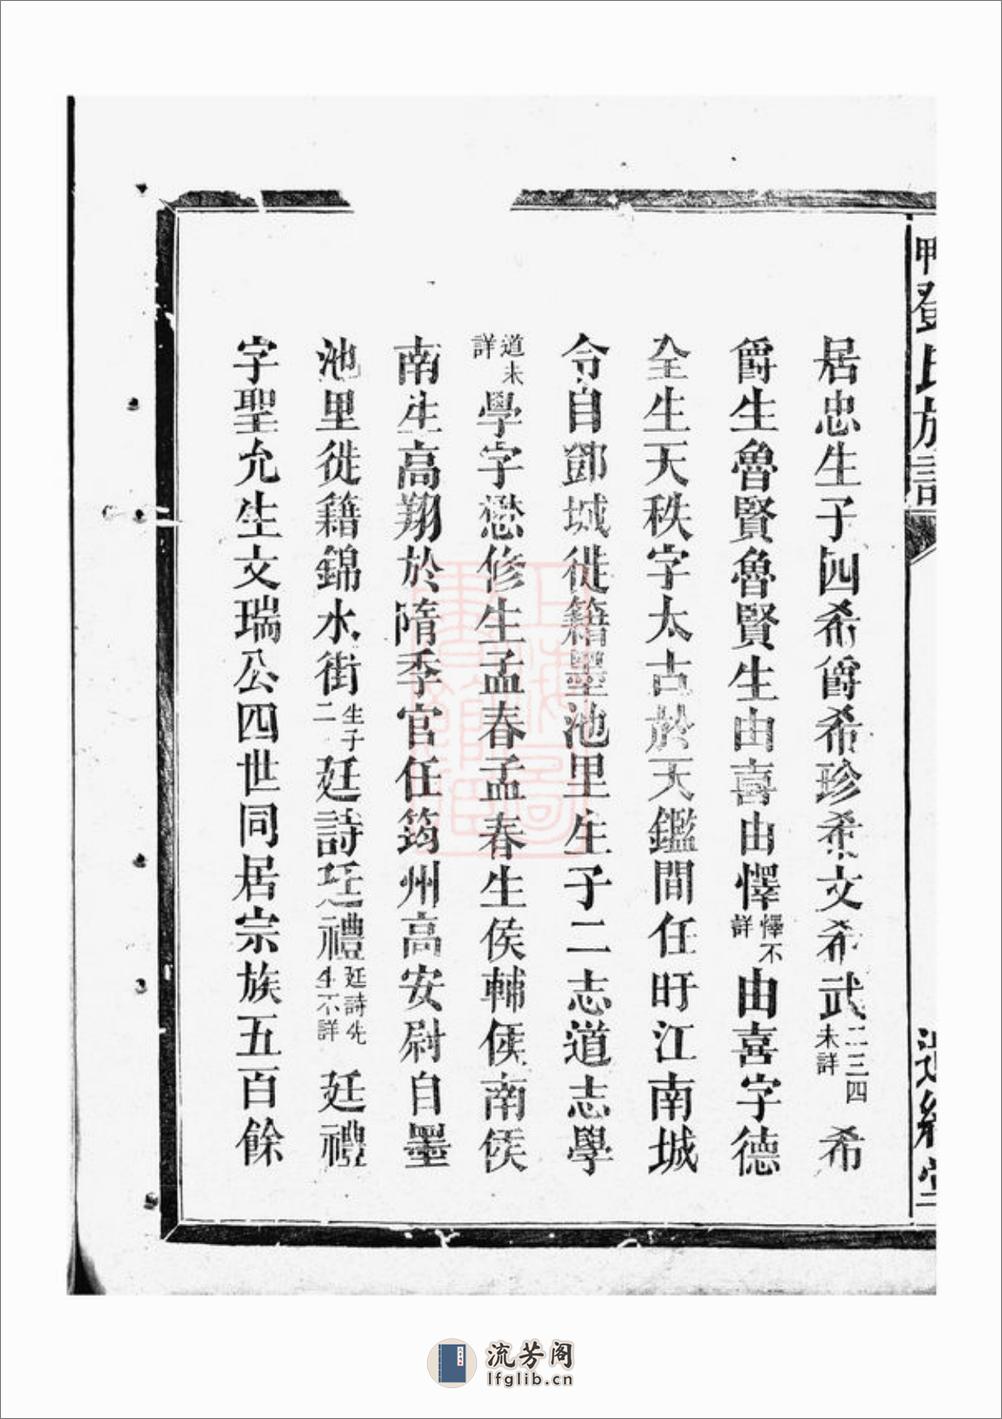 鄧氏族譜
居忠生子四希爵希珍希文希武二三四未詳希
爵生魯賢魯賢生由喜由懌懌不詳由喜字德
全生天秩字太古於天鑑間任盱江南城
令自鄧城徙籍墨池里生子二志道志學
道未詳學字懋修生孟春孟春生侯輔侯南侯
南生高翔於隋季官任筠州高安尉自墨
池里徙籍錦水街生子二廷詩廷禮廷詩先生不詳廷禮
字聖允生文瑞公四世同居宗族五百餘
上海圖書館藏
流芳阁
lfglib.cn